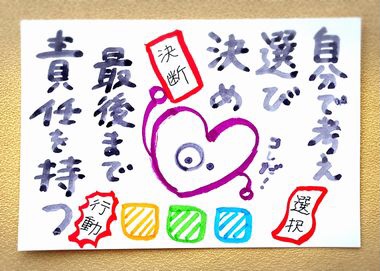 自分で考え
選び
コレだ!!
決め
決断
最後まで
責任を持つ
選択
行動